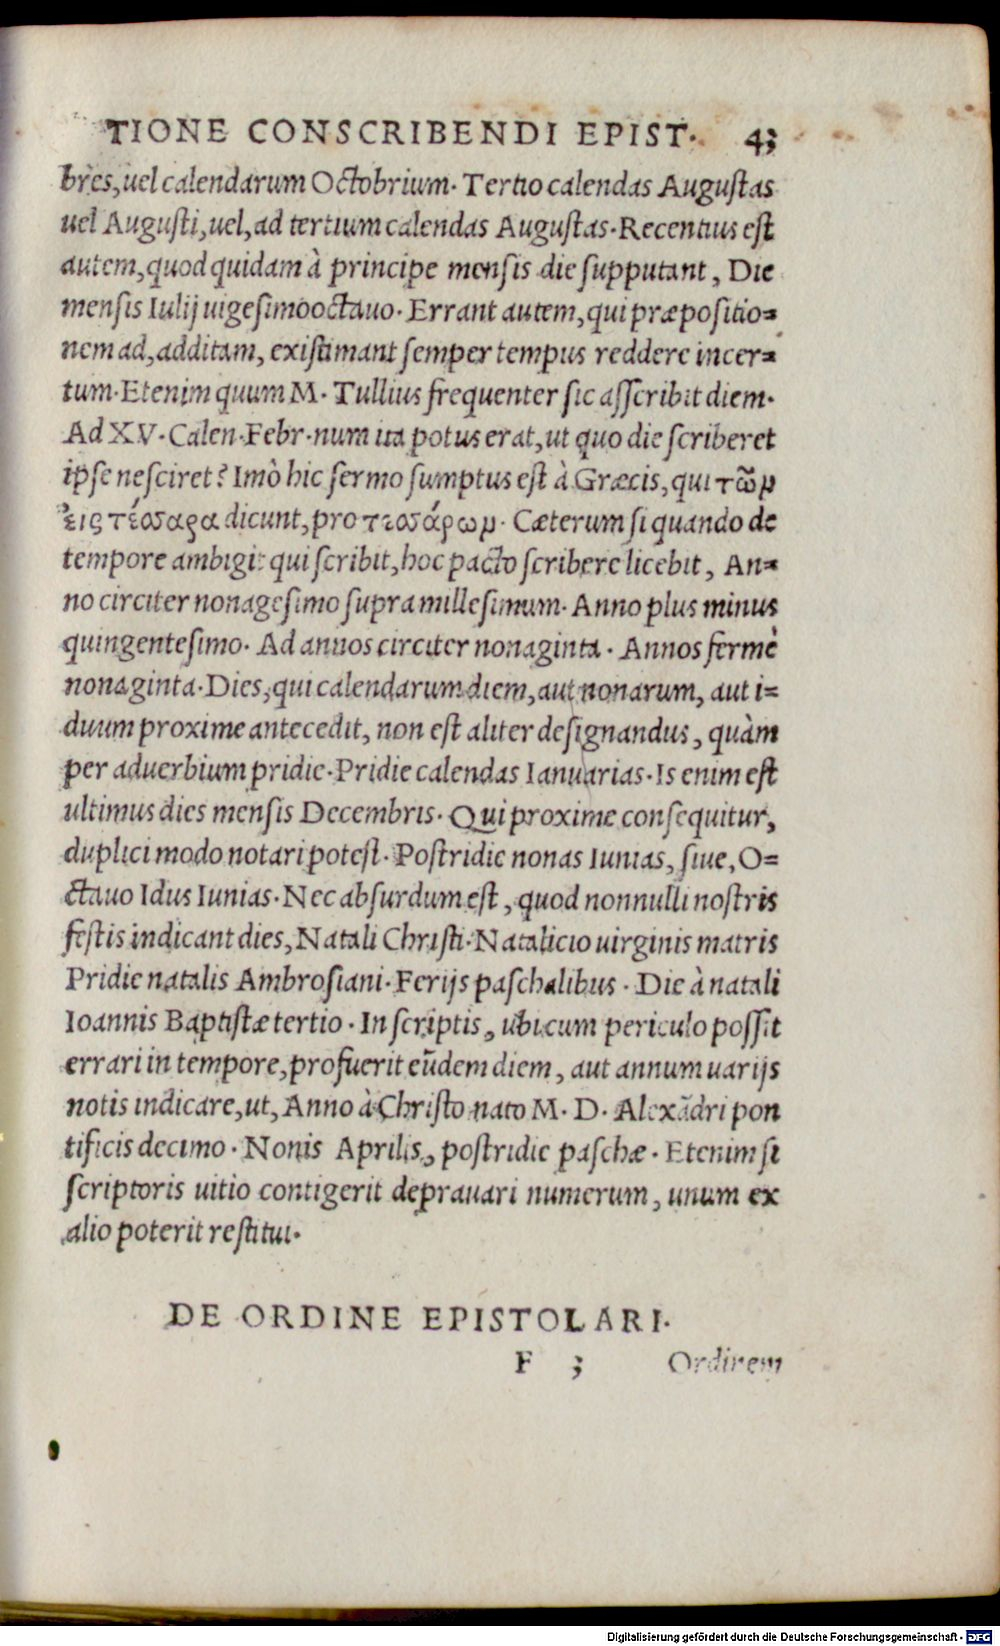 TIONE CONSCRIBENDI EPIST. 43
bres, uel calendarum Octobrium. Tertio calendas Augustas
uel Augusti, uel, ad tertium calendas Augustas. Recentius est
autem, quod quidam à principe mensis die supputant, Die
mensis Iulij uigesimooctauo. Errant autem, qui præpositio=
nem ad, additam, existimant semper tempus reddere incer=
tum. Etenim quum M. Tullius frequenter sic asscribit diem.
Ad XV. Calen. Febr. num ita potus erat, ut quo die scriberet
ipse nesciret? Imò hic sermo sumptus est à Græcis, qui τῶμ
εἰς τέσσαρα dicunt, pro τεσσάρωμ. Cæterum si quando de
tempore ambigit qui scribit, hoc pacto scribere licebit, An=
no circiter nonagesimo supra millesimum. Anno plus minus
quingentesimo. Ad annos circiter nonaginta. Annos fermè
nonaginta. Dies, qui calendarum diem, aut nonarum, aut i=
duum proxime antecedit, non est aliter designandus, quàm
per aduerbium pridie. Pridie calendas Ianuarias. Is enim est
ultimus dies mensis Decembris. Qui proxime consequitur,
duplici modo notari potest. Postridie nonas Iunias, siue, O=
ctauo Idus Iunias. Nec absurdum est, quod nonnulli nostris
festis indicant dies, Natali Christi. Natalicio uirginis matris
Pridie natalis Ambrosiani. Ferijs paschalibus. Die à natali
Ioannis Baptistæ tertio. In scriptis, ubi cum periculo possit
errari in tempore, profuerit eūdem diem, aut annum uarijs
notis indicare, ut, Anno à Christo nato M. D. Alexādri pon
tificis decimo. Nonis Aprilis, postridie paschæ. Etenim si
scriptoris uitio contigerit deprauari numerum, unum ex
alio poterit restitui.
DE ORDINE EPISTOLARI.
F 3 Ordinem
Digitalisierung gefördert durch die Deutsche Forschungsgemeinschaft - DFG